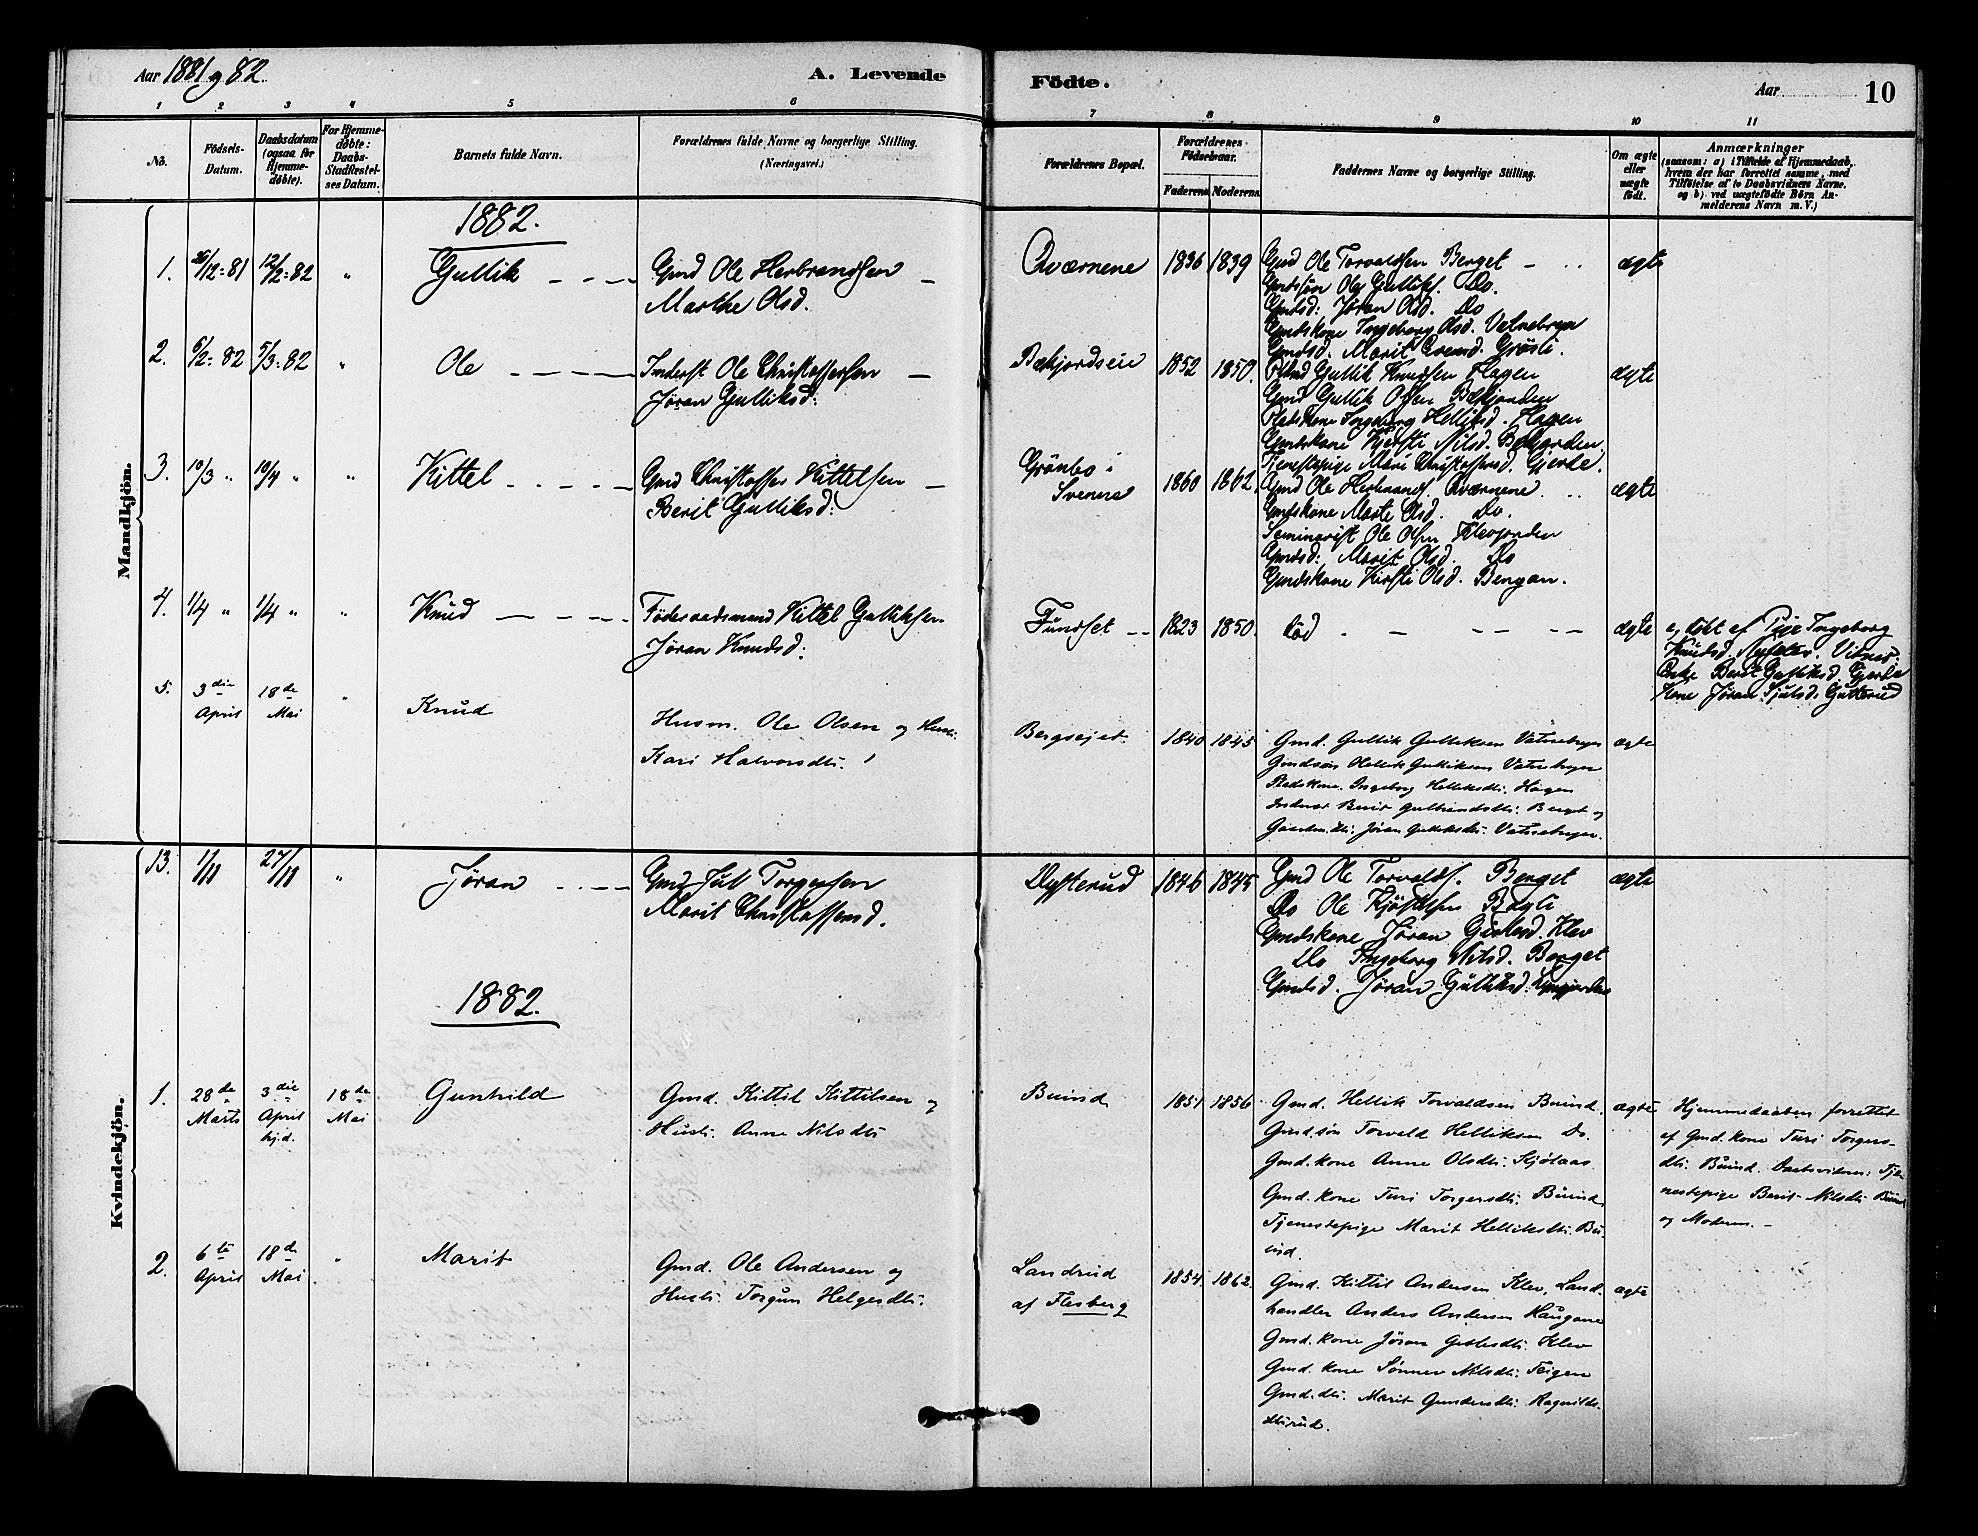 Aar 1881 og 82.
A. Levende
Födte.
Aar
10
1 2 3 4 5 6 7 8 9 10 11
No.
Födsels-
Datum.
Daabsdatum
(ogsaa for
Hjemme-
döbte).
For Hjemme-
döbte:
Daabs-
Stadfæstel-
ses Datum.
Barnets fulde Navn.
Forældrenes fulde Navne og borgerlige Stilling.
(Næringsvei.)
Forældrenes Bopæl.
Forældrenes
Födselsaar.
Faderens
Moderens.
Faddernes Navne og borgerlige Stilling.
Om ægte
eller
uægte
födt.
Anmærkninger
(saasom: a) i Tilfælde af Hjemmedaab,
hvem der har forrettet samme, med
Tilföielse af to Daabsvidners Navne,
og b) ved uægtefödte Börn An-
melderens Navn m. V.)
Mandkjön.
1882.
1. 26/12=81 12/2=82 " Gullik
Gmd Ole Herbrandsen
Marthe Olsd.
Qværnene 1836 1839
Gmd Ole Torvaldsen Berget
Gmdsøn Ole Gulliks. Do.
Gmdsd: Jøran Olsd. Do
Gmdskone Ingeborg Olsd. Vatnebryn
Gmdsd. Marit Svensd. Grøsli.
ægte
2. 6/2=82 5/3=82 " Ole
Inderst Ole Christoffersen
Jøran Gulliksd:
Bækjordseie 1852 1850.
Gullik Knudsen Hagen
Gmd Gullik Olsen Bækjorden
Pladskone Ingeborg Helliksd. Hagen
Gmdskone Kjersti Nilsd. Bækjorden
Tjenestepige Mari Christoffersd. Gjerde.
ægte
3. 10/3 " 10/4 " " Kittel
Gmd Christoffer Kittelsen
Berit Gulliksd:
Grönbo i
Svenes
1860 1862.
Gmd Ole Herbrands. Qværnene.
Gmdskone Marte Olsd. Do.
Seminarist Ole Olsen
Gmdsd: Marit Olsd. Do
Gmdskone Kirsti Olsd. Bergan.
ægte
4. 1/4 " 1/4 " " Knud
Föderaadsmand Kittel Gulliksen
Jøran Knudsd:
Fundset 1823 1850.
död
ægte
a, döbt af Pige Ingeborg
Knudsd. Vidner:
Enke Berit Gulliksd. Gjerde
Kone Jøran Sjulsd. Gutterud
5. 3die 18de "
April Mai
Knud
Husm. Ole Olsen og Hust:
Kari Halvorsdtr.
Bergsejet. 1840 1845
Gmd. Gullik Gulliksen Vatnebryn
Gmdsön Hellik Gulliksen Vatnebryn
Pladskone. Ingeborg Helliksdtr. Hagen
Inderst Berit Gulbrandsdtr. Berget og
Gaardm.dtr. Jöran Gulliksdtr. Vatnebryn.
ægte
Kvindekjön.
13. 1/11 27/11 " Jøran
Gmd Jul Torgersen
Marit Christoffersd.
Dysterud 1846 1845
Gmd Ole Torvalds. Berget
Do Ole Kjöstelsen Bagli
Gmdskone Jøran Gislesd. Klev
Do Ingeborg Nilsd. Berget
Gmdsd. Jøran Gulliksd.
ægte
1882.
1. 28de 3die 18de
Marts April Mai
hj.d.
Gunhild
Gmd. Kittil Kittilsen og
Hust: Anne Nilsdtr
Buind 1851 1856
Gmd. Hellik Torvaldsen Buind.
Gmd.sön Torvald Helliksen Do.
Gmd.kone Anne Olsdtr. Kjölaas
Gmd.kone Turi Torgersdtr. Buind
Tjenestepige Marit Helliksdtr. Bu-
ind.
ægte
Hjemmedaaben forrettet
af Gmd.kone Turi Torgers-
dtr. Buind. Daabsvidner: Tje-
nestepige Berit Nilsdtr. Buind
og Moderen. -
2. 6te 18de "
April Mai
Marit
Gmd. Ole Andersen og
Hust: Torgun Helgesdtr.
Landrud
af Flesberg
1854. 1862.
Gmd. Kittil Andersen Klev, Land-
handler Anders Andersen Haugane
Gmd.kone Jöran Gislesdtr. Klev
Gmd.kone Sönnev Nilsdtr. Teigen
Gmd.dtr. Marit Gundersdtr. Ragnilds-
rud.
ægte